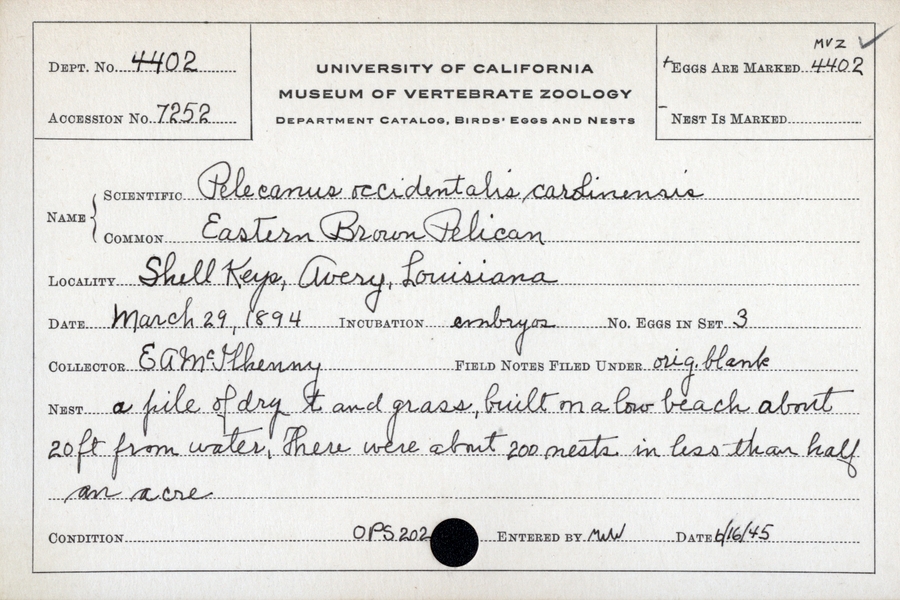 MVZ ✓
DEPT. NO. 4402
UNIVERSITY OF CALIFORNIA
MUSEUM OF VERTEBRATE ZOOLOGY
DEPARTMENT CATALOG, BIRDS' EGGS AND NESTS
+ EGGS ARE MARKED 4402
ACCESSION NO. 7252
- NEST IS MARKED
NAME { SCIENTIFIC Pelecanus occidentalis carolinensis
COMMON Eastern Brown Pelican
LOCALITY Shell Keys, Avery, Louisiana
DATE March 29, 1894 INCUBATION embryos NO. EGGS IN SET 3
COLLECTOR E A McIlhenny FIELD NOTES FILED UNDER orig. blank
NEST a pile of dry and grass, built on a low beach about
20 ft from water. There were about 200 nests in less than half
an acre
CONDITION OPS 202 ENTERED BY MW DATE 6/16/45